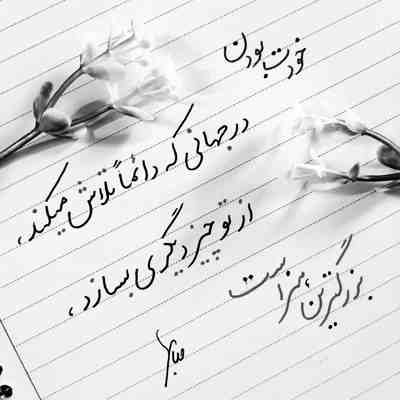 خودت بودن
در جهانی که دائماً تلاش میکند،
از تو چیز دیگری بسازد،
بزرگترین هنر است